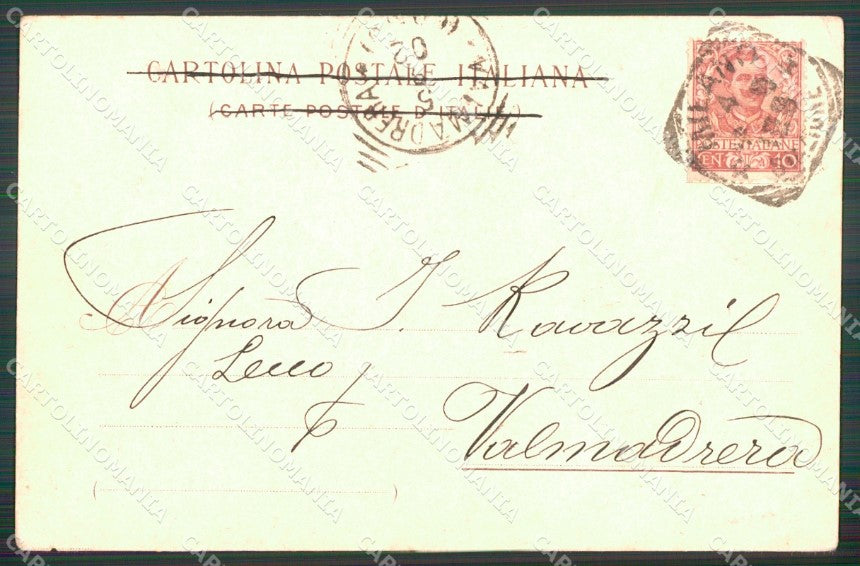 CARTOLINA POSTALE ITALIANA
(CARTE POSTALE D'ITALIE)
VALMADRERA
MILANO
POSTE ITALIANE
CEN 10
Signora I. Ravazzil
Lecco
Valmadrera
CARTOLINOMANIA